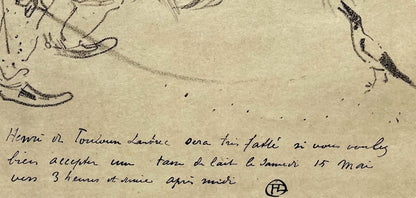 Henri de Toulouse Lautrec sera très flatté si vous voulez
bien accepter une tasse de lait le Samedi 15 Mai
vers 3 heures et demie après midi